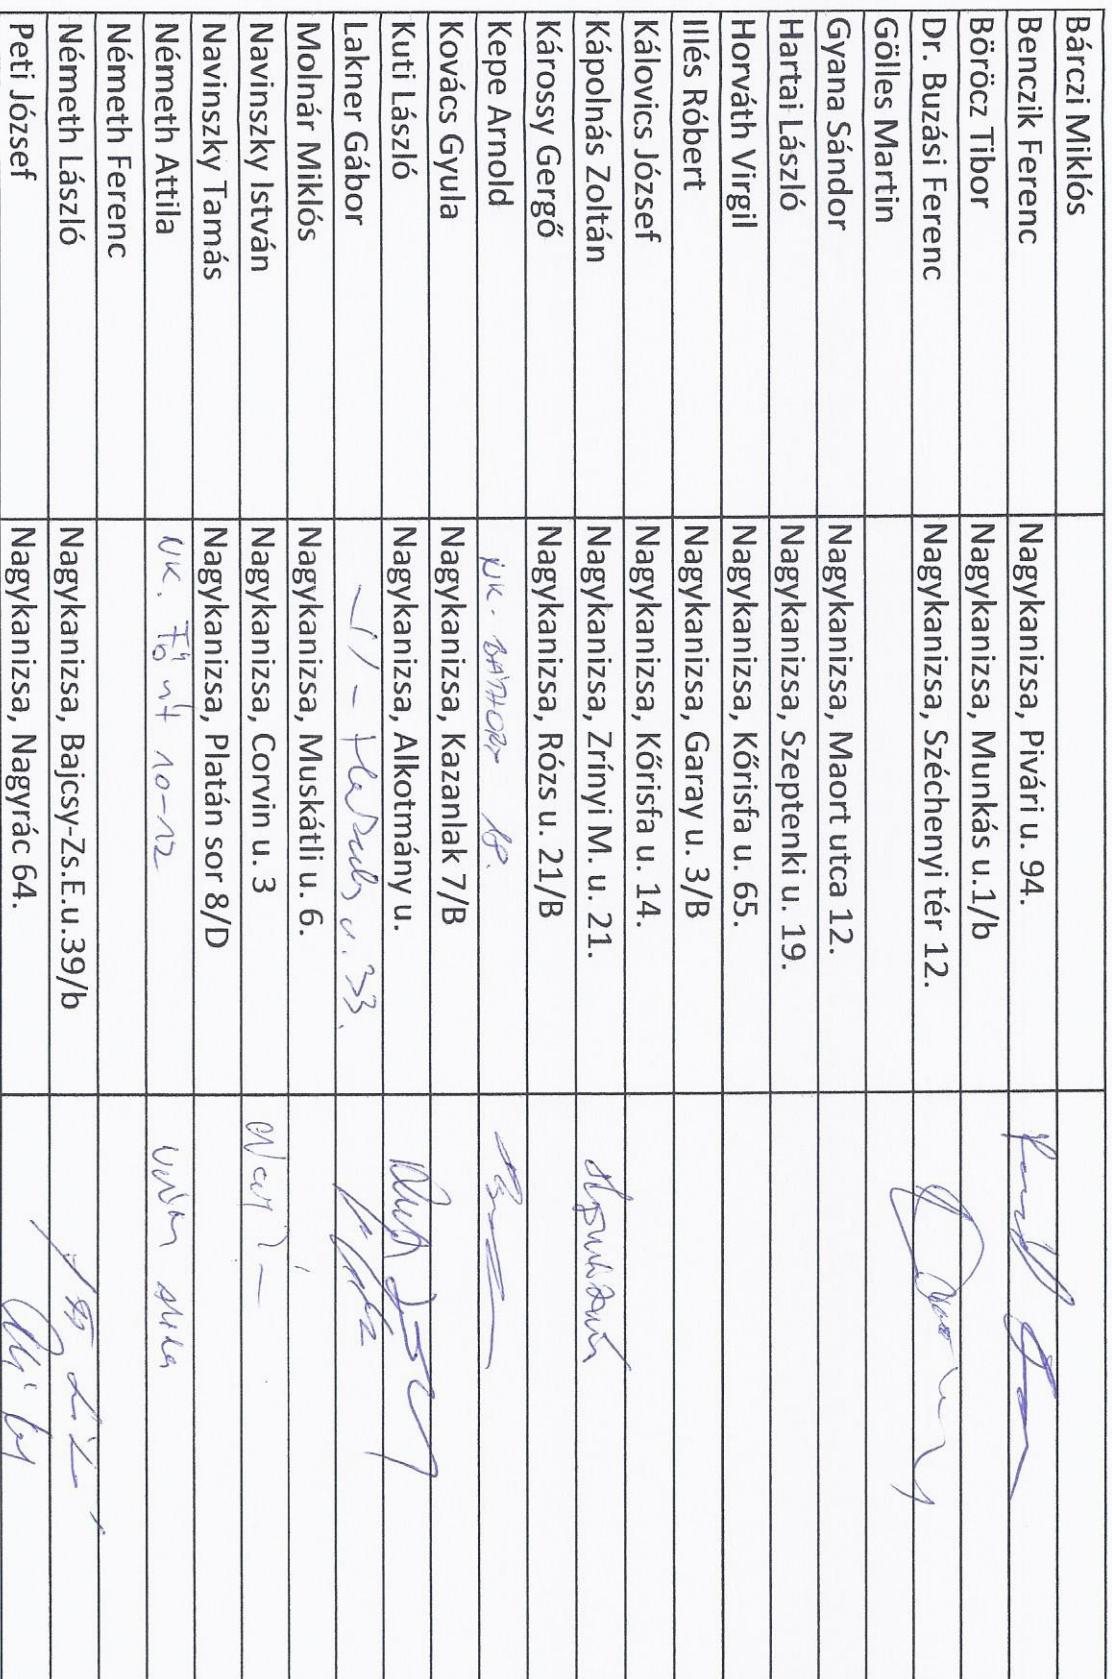 Bárczi Miklós
Benczik Ferenc Nagykanizsa, Pivári u. 94.
Böröcz Tibor Nagykanizsa, Munkás u.1/b
Dr. Buzási Ferenc Nagykanizsa, Széchenyi tér 12.
Gölles Martin
Gyana Sándor Nagykanizsa, Maort utca 12.
Hartai László Nagykanizsa, Szeptenki u. 19.
Horváth Virgil Nagykanizsa, Kőrisfa u. 65.
Illés Róbert Nagykanizsa, Garay u. 3/B
Kálovics József Nagykanizsa, Kőrisfa u. 14.
Kápolnás Zoltán Nagykanizsa, Zrínyi M. u. 21.
Károssy Gergő Nagykanizsa, Rózs u. 21/B
Kepe Arnold NK. BÁTHORY 18.
Kovács Gyula Nagykanizsa, Kazanlak 7/B
Kuti László Nagykanizsa, Alkotmány u.
Lakner Gábor u. 33.
Molnár Miklós Nagykanizsa, Muskátli u. 6.
Navinszky István Nagykanizsa, Corvin u. 3
Navinszky Tamás Nagykanizsa, Platán sor 8/D
Németh Attila NK. Fő út 10-12
Németh Ferenc
Németh László Nagykanizsa, Bajcsy-Zs.E.u.39/b
Peti József Nagykanizsa, Nagyrác 64.